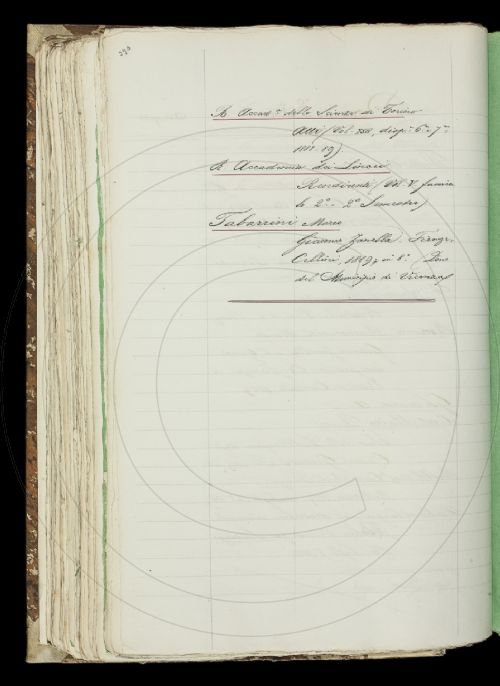 R. Accad.ª delle Scienze di Torino
Atti (Vol. XXIV, disp.ª 6.ª-7.ª
R. Accademia dei Lincei
Rendiconti (Vol. V fascico
lo 2.º - 2.º Semestre)
Tabarrini Marco
Giacomo Zanella. Firenze,
Cellini, 1889, in 8.º (Dono
del Municipio di Vicenza)